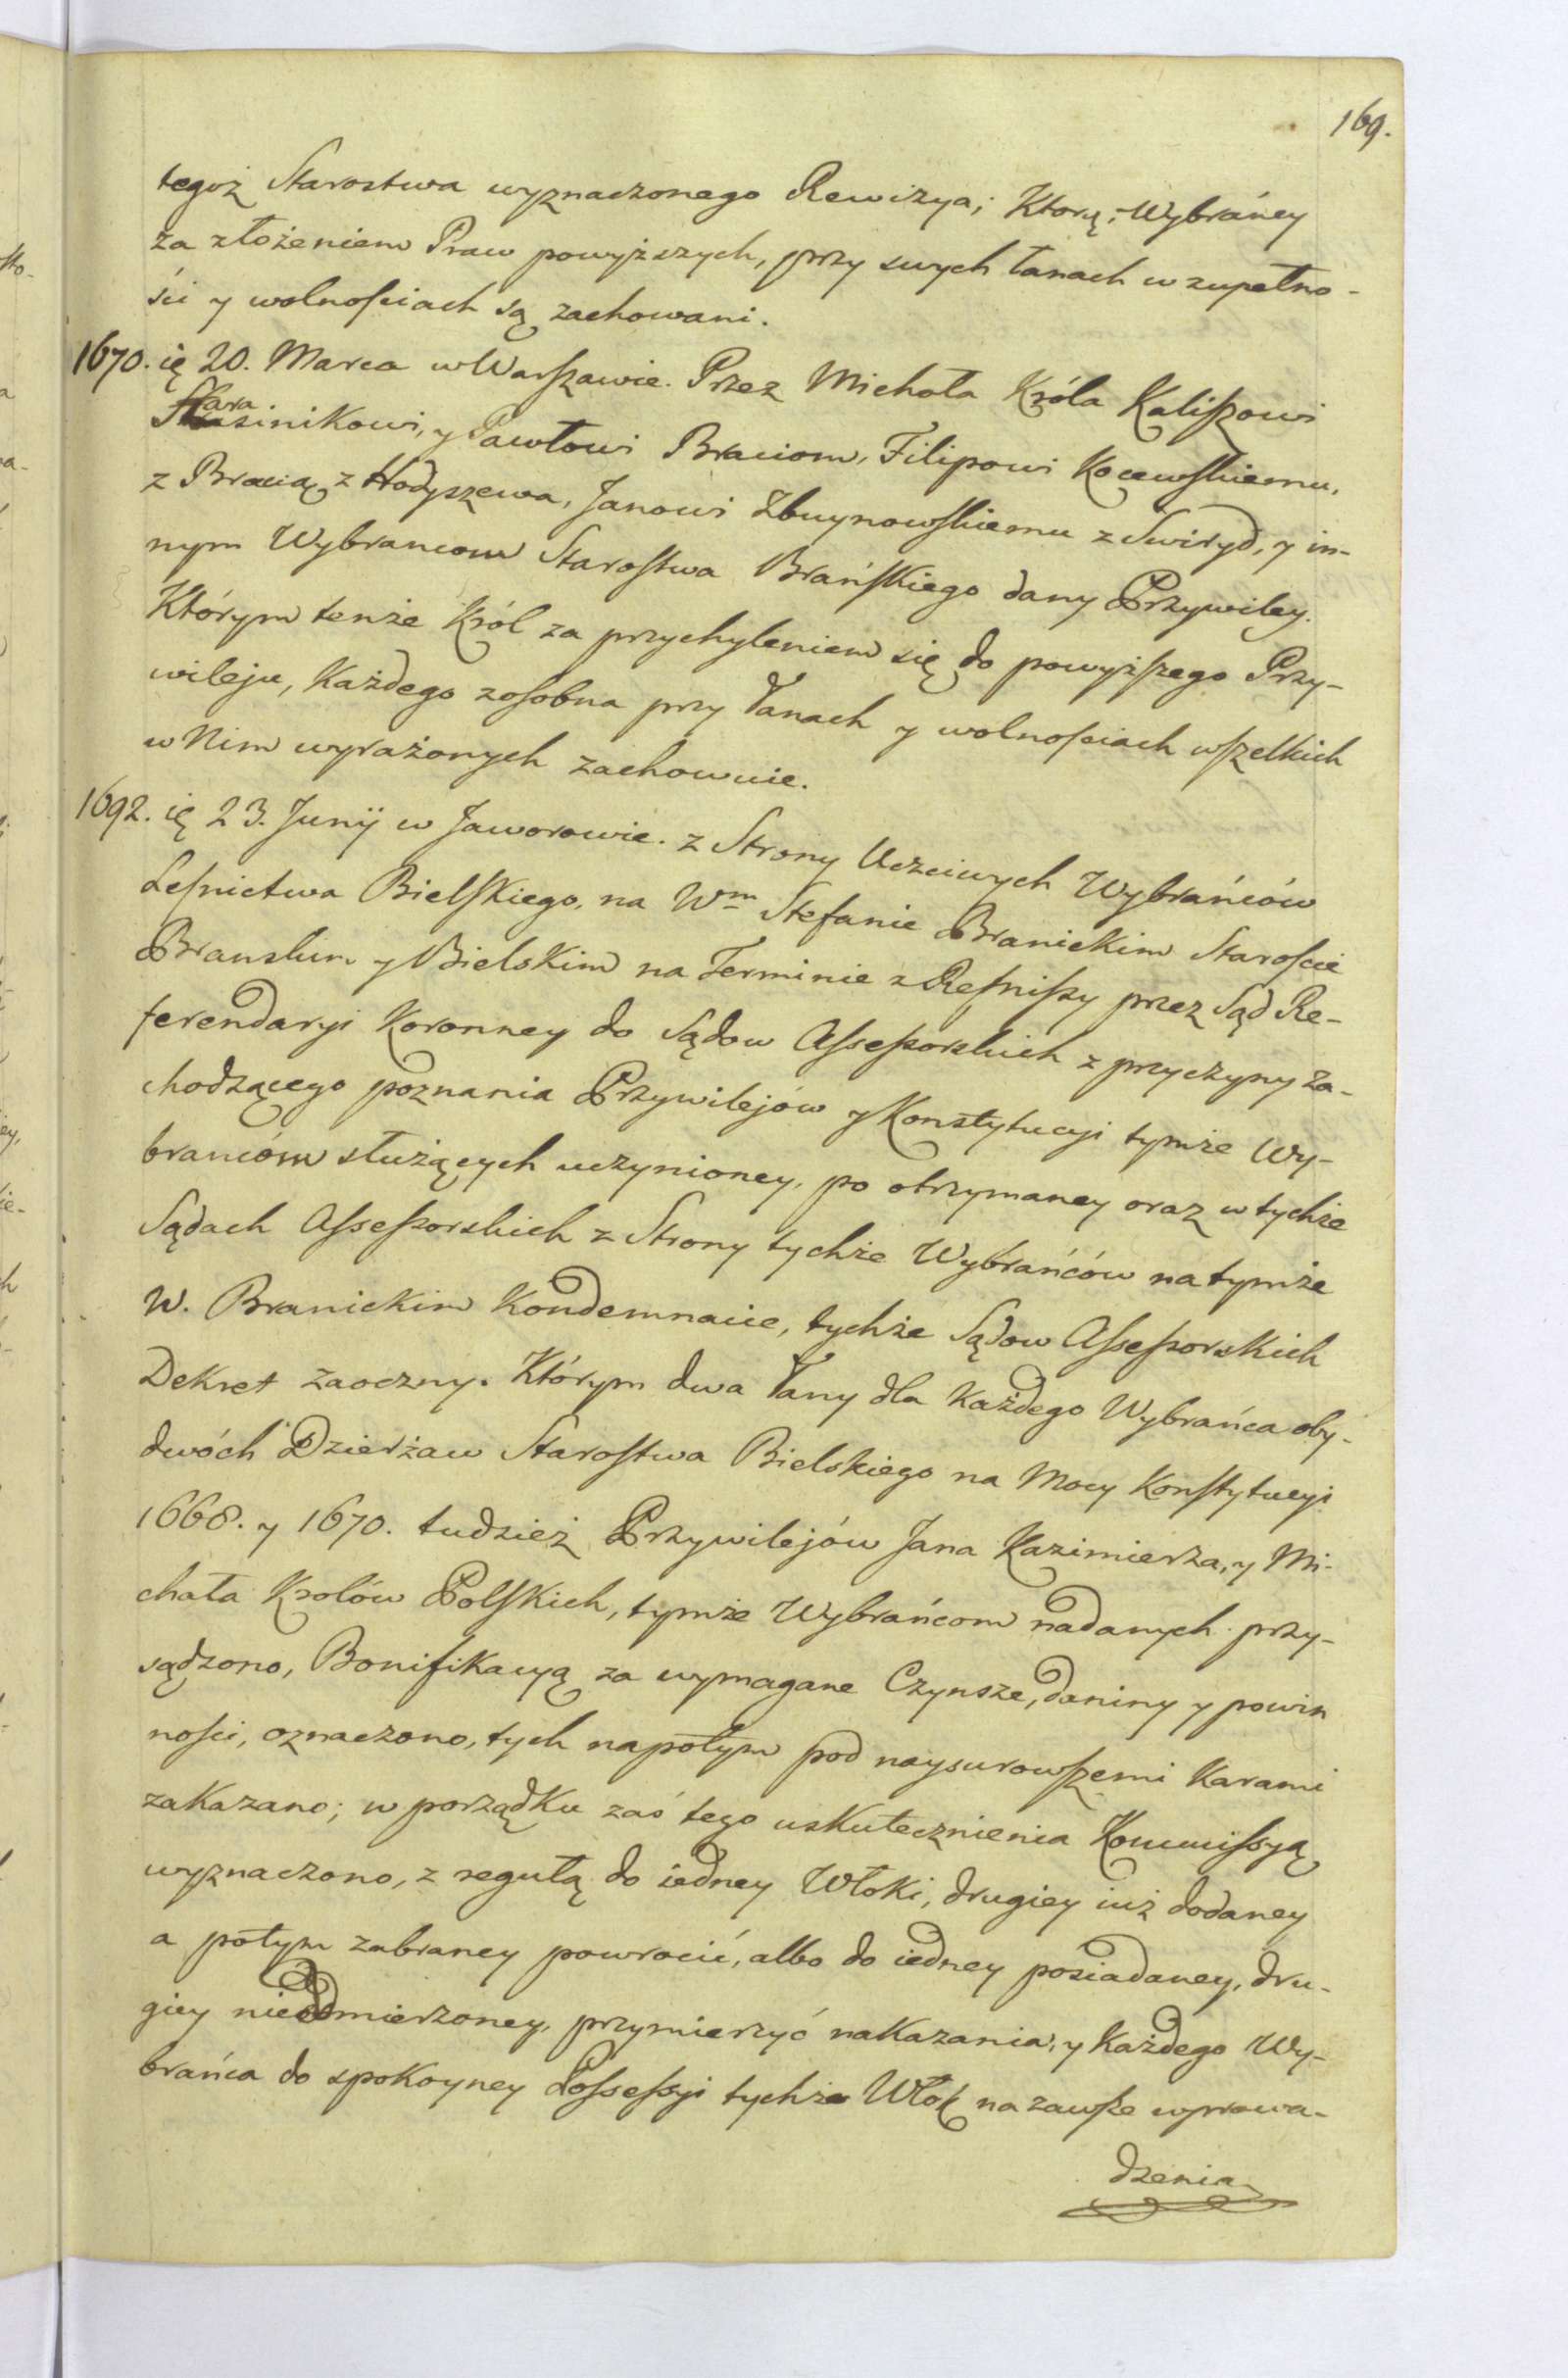 169.
tegoż Starostwa wyznaczonego Rewizya; Którą; Wybráncy
za złożeniem Praw powyższych, przy swych łanach w zupełno-
ści y wolnościach są zachowani.
1670. ię 20. Marca w Warszawie. Przez Michała Króla Kaliszowi
y Pawłowi Braciom, Filipowi Kocewskiemu,
z Bracią z Hodyszewa, Janowi Zbuynowskiemu z Swiryd, y in-
nym Wybrancom Starostwa Brańskiego dany Przywiley.
Którym tenże Król za przychyleniem się do powyższego Przy-
wileju, Każdego zosobna przy Łanach y wolnościach wszelkich
w Nim wyrażonych zachowuie.
1692. ię 23. Junij w Jaworowie. z Strony Uczciwych Wybrańców
Leśnictwa Bielskiego, na Wm Stefanie Branickim Staroście
Branskim y Bielskim na Terminie z Remissy przez Sąd Re-
ferendaryi Koronney do Sądow Assessorskich z przyczyny za-
chodzącego poznania Przywilejów y Konstytucyi tymże Wy-
brancóm służących uczynioney, po otrzymaney oraz w tychże
Sądach Assessorskich z Strony tychże Wybrańców na tymże
W. Branickim Kondemnacie, tychże Sądow Assessorskich
Dekret zaoczny. Którym dwa Łany dla Każdego Wybrańca oby-
dwóch Dzierżaw Starostwa Bielskiego na Mocy Konstytucyi
1668. y 1670. tudzież Przywilejów Jana Kazimierza, y Mi-
chała Krolów Polskich, tymże Wybrańcom nadanych przy-
sądzono, Bonifikacyą za wymagane Czynsze, daniny y powin
ności, oznaczono, tych napotym pod naysurowszemi Karami
zakazano; w porządku zaś tego uskutecznienia Kommissyą
wyznaczono, z regułą do iedney Włoki, drugiey iuż dodaney
a potym zabraney powrocić, albo do iedney posiadaney, dru-
giey nieodmierzoney, przymierzyć nakazania, y Każdego Wy-
brańca do spokoyney Possessyi tychże Włok na zawsze wprowa-
dzenia